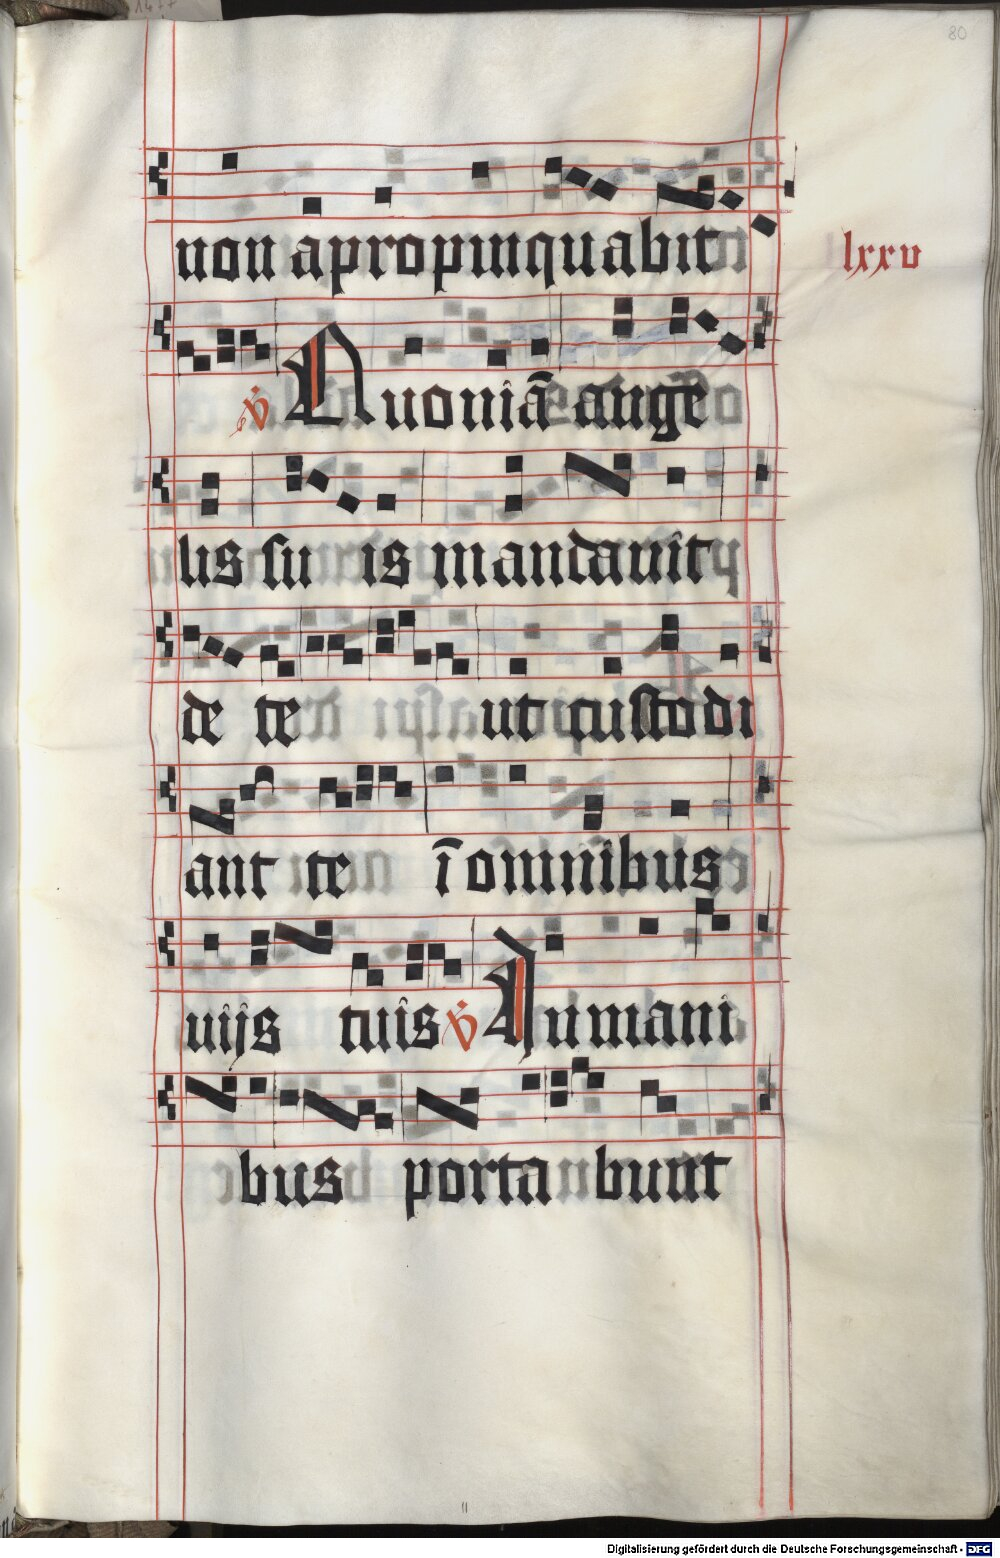 80
non apropinquabit
lxxv
v̇ Quoniā ange
lis su is mandauit
de te ut custodi
ant te ī omnibus
uijs tuis v̇ In mani
bus porta bunt
Digitalisierung gefördert durch die Deutsche Forschungsgemeinschaft - DFG